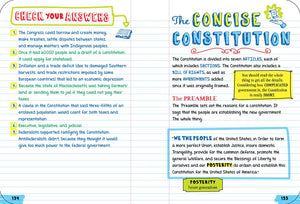 CHECK YOUR ANSWERS
1. The Congress could borrow and create money,
make treaties, settle disputes between states,
and manage matters with Indigenous peoples.
2. Once it had 60,000 people and a draft of a constitution,
it could apply for statehood.
3. Inflation and a trade deficit (due to damaged Southern
harvests), and trade restrictions imposed by some
European countries that led to an economic depression
4. Because the state of Massachusetts was taking farmers'
land or sending them to jail if they could not pay their
taxes
5. A clause in the Constitution that said three-fifths of an
enslaved population would count for both taxes and
representation.
6. Executive, legislative, and judicial
7. Federalists supported ratifying the Constitution.
Antifederalists didn't, because they thought it would
give too much power to the federal government.
134
The CONCISE
CONSTITUTION
The Constitution is divided into seven ARTICLES, each of
which includes SECTIONS. The Constitution also includes a
BILL OF RIGHTS, as well as
more AMENDMENTS added
since it was originally framed.
You should read the whole
thing to get all the details.
Considering how COMPLICATED
government is, the Constitution
is really SHORT.
The PREAMBLE
The Preamble sets out the reasons for a constitution. It
says that the people are establishing the new government.
The whole thing:
"WE THE PEOPLE of the United States, in Order to form
a more perfect Union, establish Justice, insure domestic
Tranquility, provide for the common defense, promote the
general welfare, and secure the Blessings of Liberty to
ourselves and our POSTERITY do ordain and establish this
Constitution for the United States of America."
POSTERITY
future generations
135